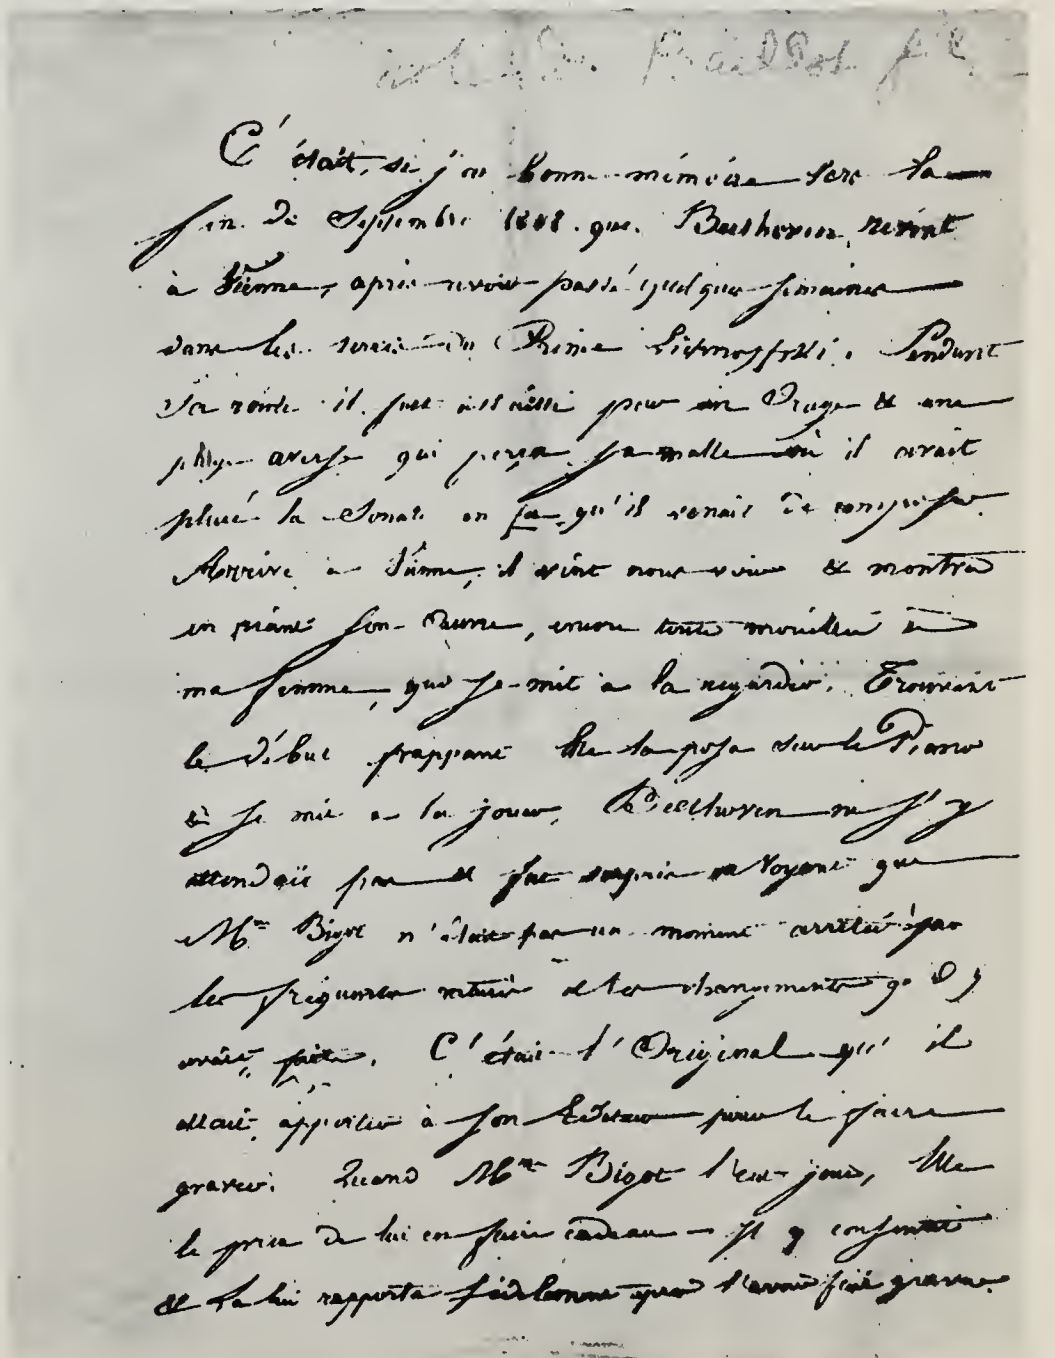 Baillot fils
C'était, si j'ai bonne mémoire vers la
fin de Septembre 1808. que. Beethoven, revint
à Vienne, après avoir passé quelques semaines
dans les terres du Prince Lichnoffski. Pendant
sa route il fut assailli par un Orage & une
pluye averse qui perça sa malle où il avait
placé la Sonate en fa qu'il venait de composer
Arrivé à Vienne, il vint nous voir & montra
en riant son Œuvre, encore toute mouillée à
ma femme, qui se mit a la regarder. Trouvant
le début frappant Elle la posa sur le Piano
& se mit a la jouer, Beethoven ne s'y
attendait pas & fut surpris en voyant que
Mme Bigot n'était pas un moment arrêtée par
les fréquentes ratures & les changements qu'il y
avait faits. C'était l'Original qu'il
allait apporter à son Editeur pour le faire
graver. Quand Mme Bigot l'eut joué, Elle
le pria de lui en faire cadeau - Il y consentit
& la lui rapporta fidèlement après l'avoir fait graver.